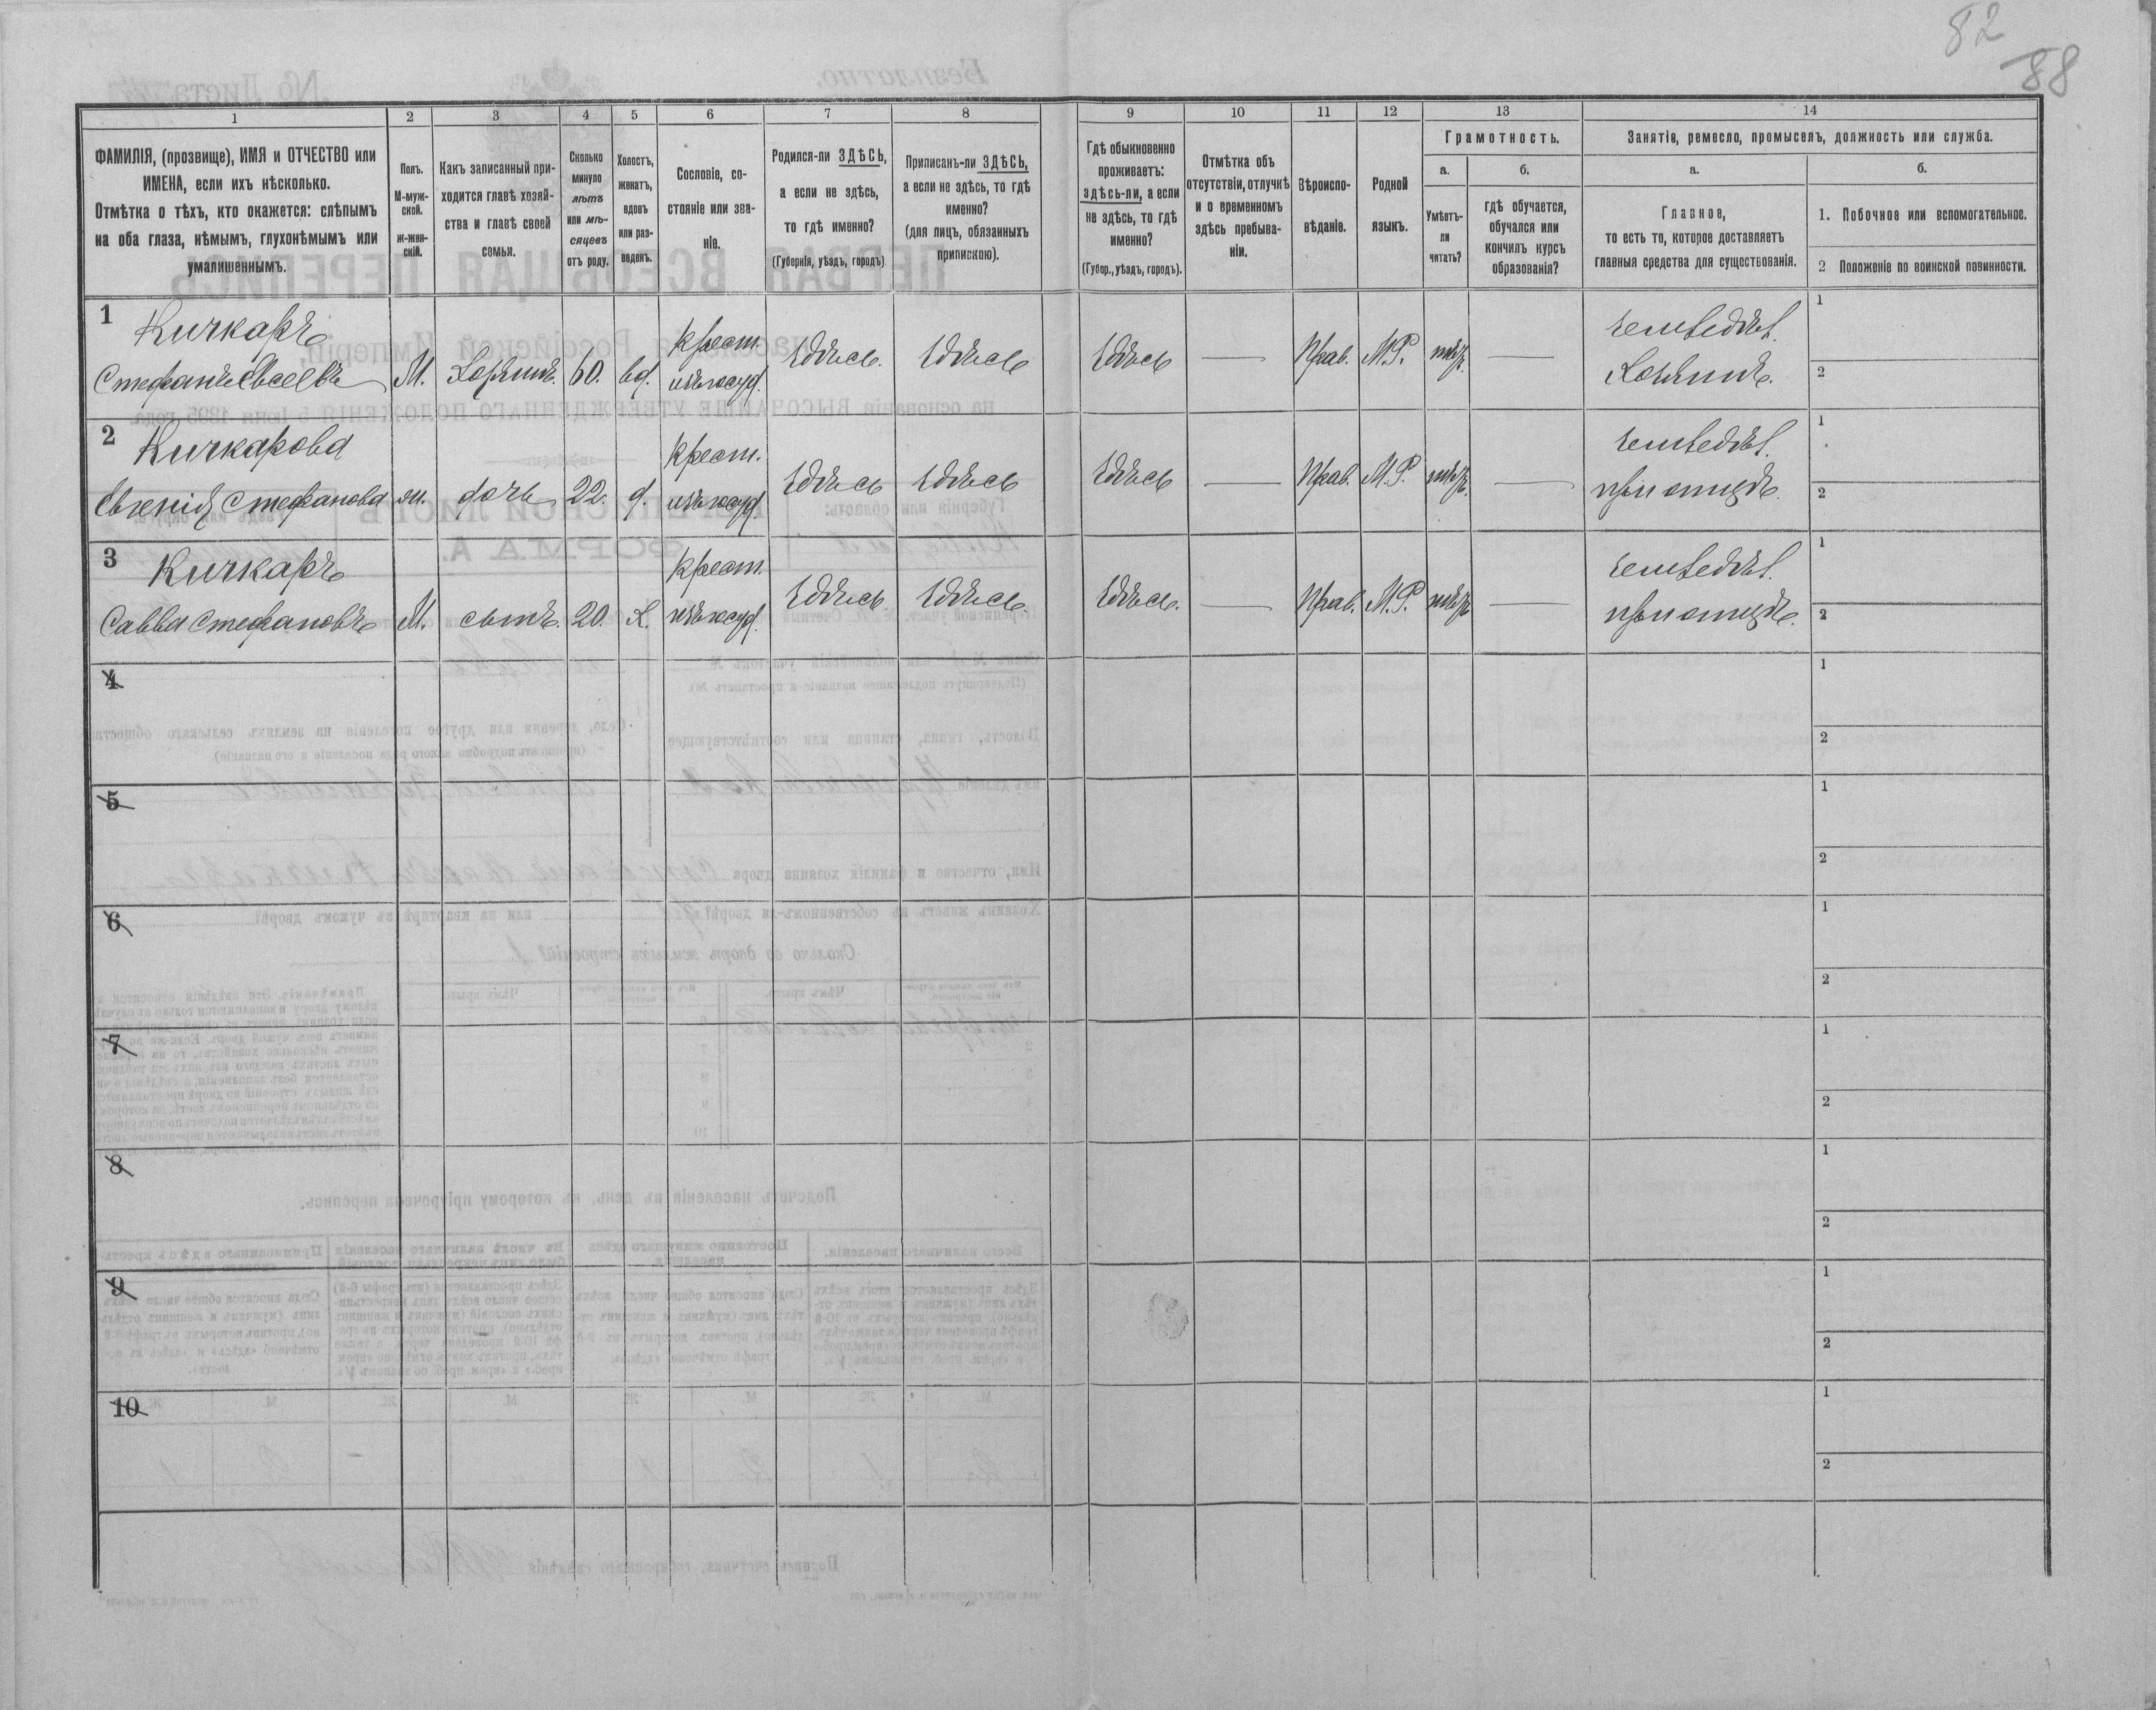 82
88
1
2
3
4
5
6
7
8
9
10
11
12
13
14
ФАМИЛІЯ, (прозвище), ИМЯ и ОТЧЕСТВО или
ИМЕНА, если ихъ нѣсколько.
Отмѣтка о тѣхъ, кто окажется: слѣпымъ
на оба глаза, нѣмымъ, глухонѣмымъ или
умалишеннымъ.
Полъ.
М-муж-
ской.
ж-жен-
скій.
Какъ записанный при-
ходится главѣ хозяй-
ства и главѣ своей
семьи.
Сколько
минуло
лѣтъ
или мѣ-
сяцевъ
отъ роду.
Холостъ,
женатъ,
вдовъ
или раз-
веденъ.
Сословіе, со-
стояніе или зва-
ніе.
Родился-ли ЗДѢСЬ,
а если не здѣсь,
то гдѣ именно?
(Губернія, уѣздъ, городъ)
Приписанъ-ли ЗДѢСЬ,
а если не здѣсь, то гдѣ
именно?
(для лицъ, обязанныхъ
припискою).
Гдѣ обыкновенно
проживаетъ:
здѣсь-ли, а если
не здѣсь, то гдѣ
именно?
(Губер., уѣздъ, городъ).
Отмѣтка объ
отсутствіи, отлучкѣ
и о временномъ
здѣсь пребыва-
ніи.
Вѣроиспо-
вѣданіе.
Родной
языкъ.
Грамотность.
а.
Умѣетъ-
ли
читать?
б.
гдѣ обучается,
обучался или
кончилъ курсъ
образованія?
Занятіе, ремесло, промыселъ, должность или служба.
а.
Главное,
то есть то, которое доставляетъ
главныя средства для существованія.
б.
1. Побочное или вспомогательное.
2 Положеніе по воинской повинности.
1
Кичкаръ
Стефанъ Евсеевъ
М.
Хозяинъ.
60.
вд.
Крест.
изъ госуд.
Здѣсь.
Здѣсь
Здѣсь
—
Прав.
М.Р.
нѣтъ.
—
земледѣл.
Хозяинъ.
1
2
2
Кичкарова
Евгенія Стефанова
ж.
дочь
22.
д.
Крест.
изъ госуд.
Здѣсь
Здѣсь
Здѣсь
—
Прав.
М.Р.
нѣтъ.
—
земледѣл.
при отцѣ.
1
2
3
Кичкаръ
Савва Стефановъ
М.
сынъ.
20.
Х.
Крест.
изъ госуд.
Здѣсь.
Здѣсь.
Здѣсь.
—
Прав.
М.Р.
нѣтъ
—
земледѣл.
при отцѣ.
1
2
4
1
2
5
1
2
6
1
2
7
1
2
8
1
2
9
1
2
10
1
2